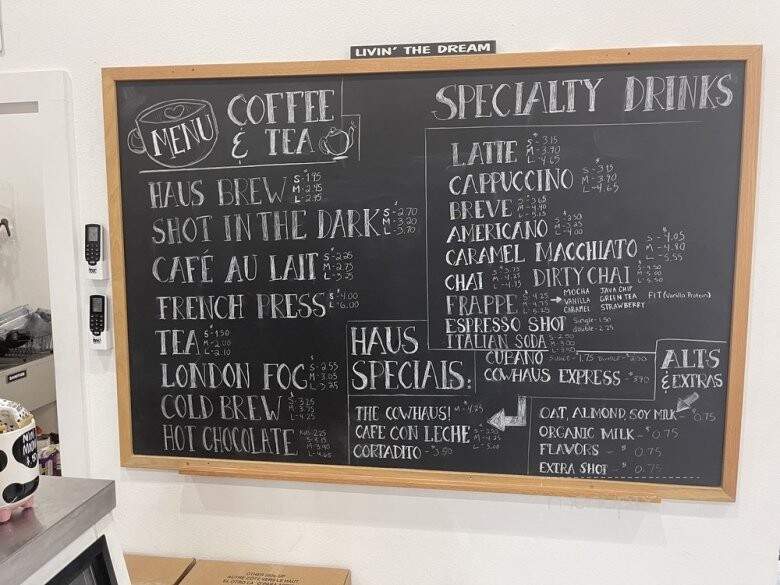 LIVIN' THE DREAM
MENU
COFFEE
& TEA
HAUS BREW S-1.95
M-2.45
L-2.95
SHOT IN THE DARK S-2.70
M-3.20
L-3.70
CAFÉ AU LAIT S-2.25
M-2.75
L-3.25
FRENCH PRESS $4.00
L-6.00
TEA S-1.50
M-2.00
L-2.10
LONDON FOG S-2.55
M-3.05
L-3.35
COLD BREW S-3.25
M-3.75
L-4.25
HOT CHOCOLATE
M-3.90
L-4.65
SPECIALTY DRINKS
LATTE S-3.15
M-3.90
L-4.65
CAPPUCCINO S-3.15
M-3.90
L-4.65
BREVE S-3.65
M-4.40
L-5.15
AMERICANO
L-4.00
CARAMEL MACCHIATO S-4.05
M-4.80
L-5.55
CHAI
DIRTY CHAI S-4.50
M-5.00
L-5.50
FRAPPE
MOCHA JAVA CHIP
VANILLA GREEN TEA FIT (Vanilla Protein)
CARAMEL STRAWBERRY
ESPRESSO SHOT Single-1.50
double-2.25
ITALIAN SODA
HAUS
SPECIALS:
CUBANO Single-1.75
COWHAUS EXPRESS-3.90
THE COWHAUS! M-4.25
CAFE CON LECHE
M-4.25
L-5.00
CORTADITO-3.50
ALTS
& EXTRAS
OAT, ALMOND, SOY MILK-0.75
ORGANIC MILK-$0.75
FLAVORS-$0.75
EXTRA SHOT-$0.75